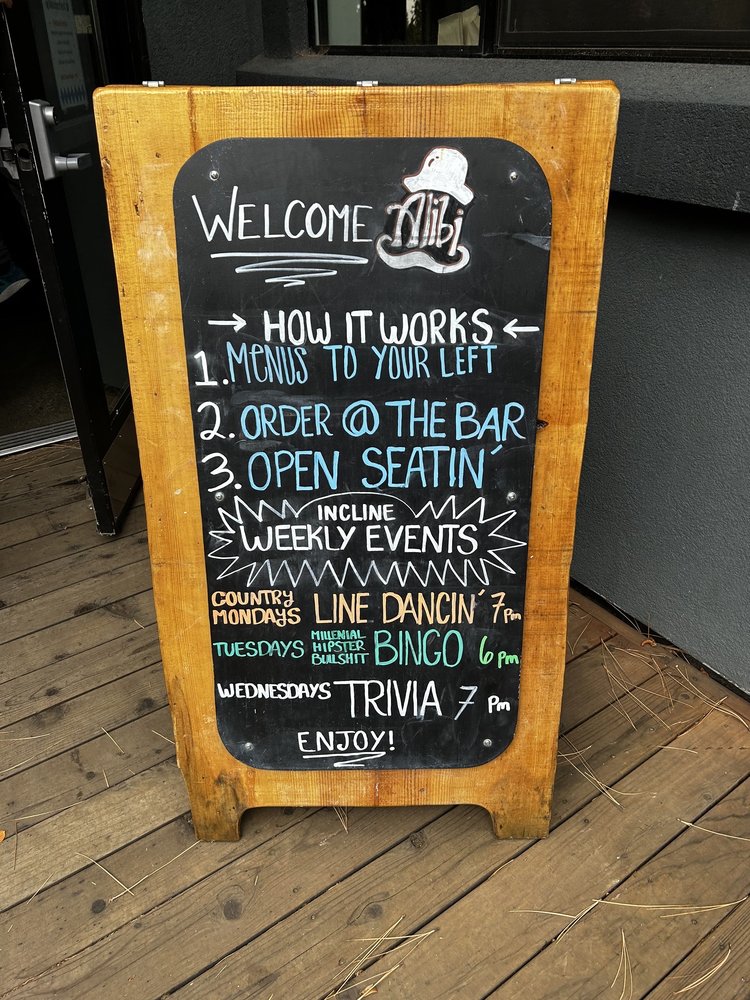 WELCOME Alibi
→ HOW IT WORKS ←
1. MENUS TO YOUR LEFT
2. ORDER @ THE BAR
3. OPEN SEATIN'
INCLINE
WEEKLY EVENTS
COUNTRY MONDAYS LINE DANCIN' 7 pm
TUESDAYS MILLENIAL HIPSTER BULLSHIT BINGO 6 pm
WEDNESDAYS TRIVIA 7 pm
ENJOY!